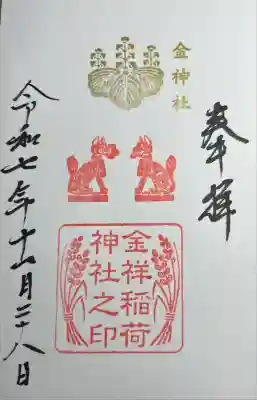 奉拝
金神社
金祥稲荷
神社之印
令和七年十二月二十八日